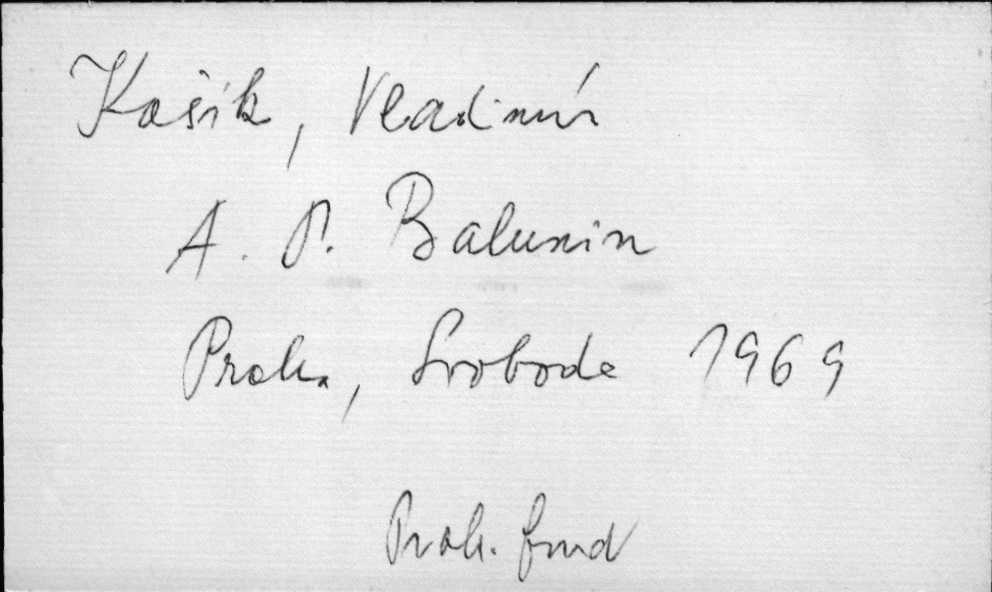 Kašík, Vladimír
A. P. Bakunin
Praha, Svoboda 1969
Proh. fond